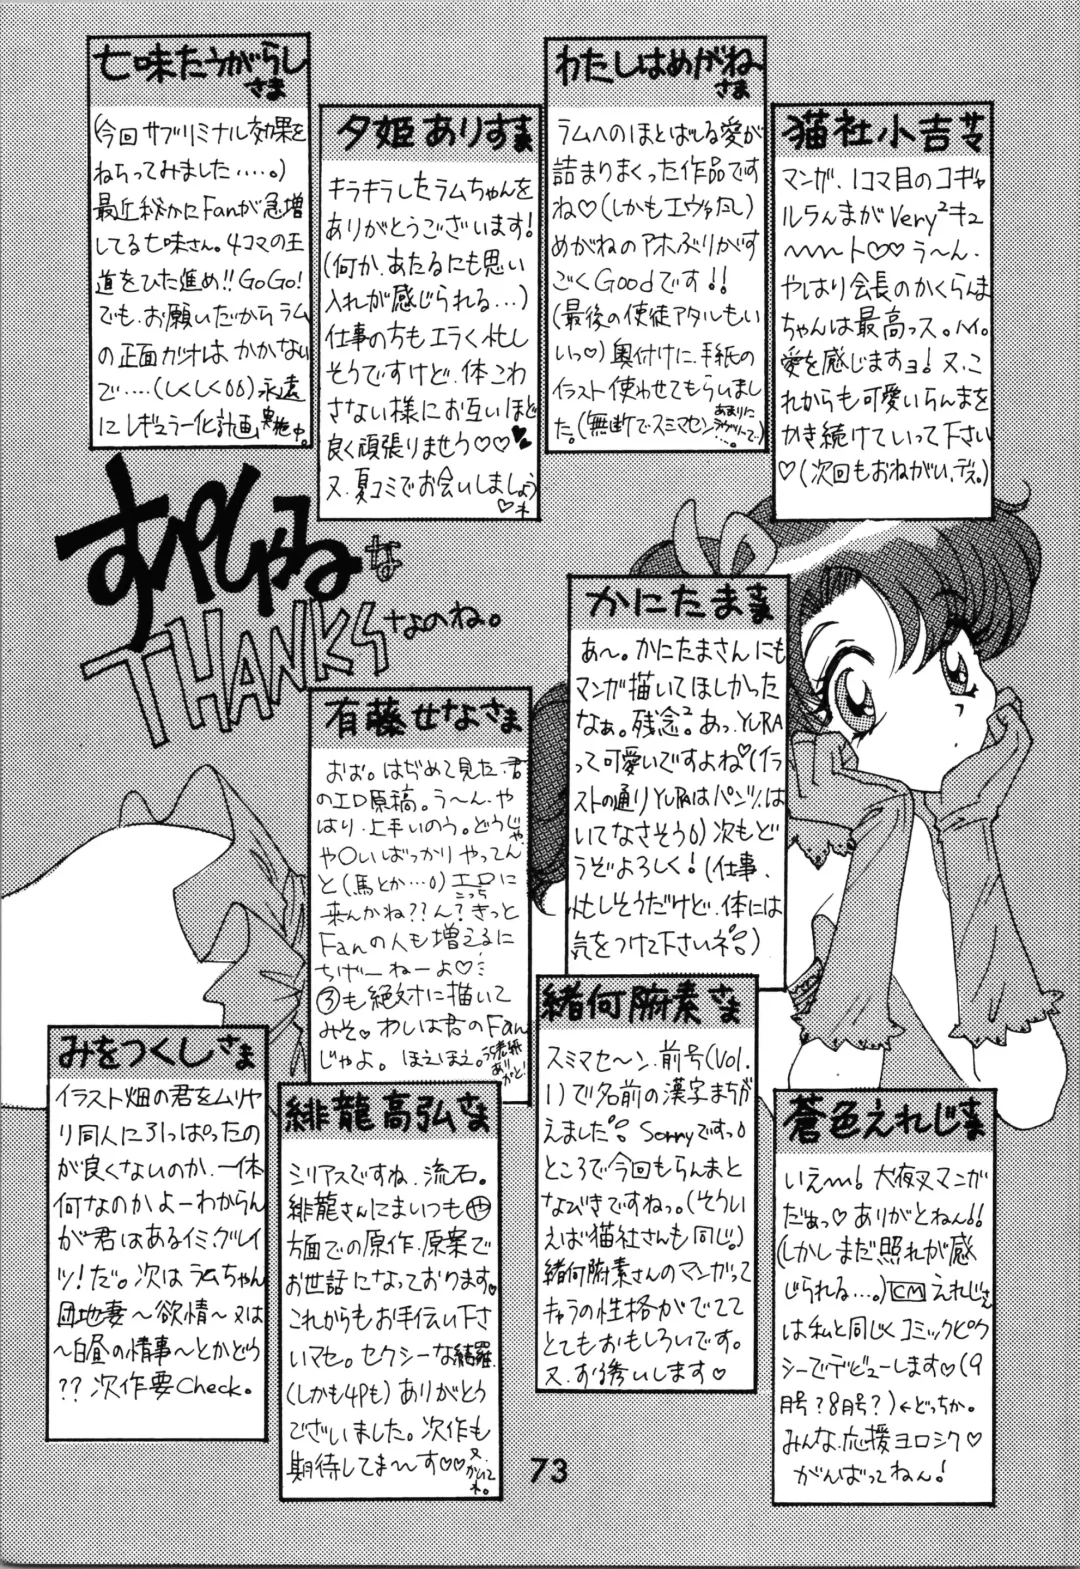 七味たうがらし
さま
(今回サブリミナル効果を
ねらってみました‥‥。)
最近秘かにFanが急増
してる七味さん。4コマの王
道をひた進め!!GoGo!
でも、お願いだからラム
の正面ガオはかかない
で‥‥(しくしく)永遠
にレギュラー化計画実施中。
夕姫ありすさま
キラキラしたラムちゃんを
ありがとうございます!
(何か、あたるにも思い
入れが感じられる…)
仕事の方もエラく忙し
そうですけど、体こわ
さない様にお互いほど
良く頑張りませう♡♡♥
又、夏コミでお会いしましょう
♡ネ
わたしはめがね
さま
ラムへのほとばしる愛が
詰まりまくった作品です
ね♡(しかもエヴァだし)
めがねのアホぶりがす
ごくGoodです!!
(最後の使徒アタルもい
いっ♡)奥付けに、手紙の
イラスト使わせてもらいまし
た。(無断でスミマセン‥
猫社小吉サマ
マンガ、1コマ目のコギャ
ルらんまがVery²キュ
〜〜〜ト♡♡う〜ん。
やはり会長のかくらんま
ちゃんは最高っス。ハイ。
愛を感じますヨ!又、こ
れからも可愛いらんまを
かき続けていって下さい
♡(次回もおねがい、デス。)
すぺしゃるな
THANKSなのね。
かにたまさま
あ〜。かにたまさんにも
マンガ描いてほしかった
なぁ。残念²。あっ、YURA
って可愛いですよね♡(イラ
ストの通りYURAはパンツ、は
いてなさそう)次もど
うぞよろしく!(仕事、
忙しそうだけど、体には
気をつけて下さいネ。)
有藤せなさま
おお。はぢめて見た、君
のエロ原稿。う〜ん、や
はり、上手いのう。どうじゃ、
や○いばっかりやってん
と(馬とか…)エロに
こっち
来んかね??ん?きっと
Fanの人も増えるに
ちげーねーよ♡
③も絶対に描いて
みそ♡わしは君のFan
じゃよ。ほえほえ。
緒何腑素さま
スミマセ〜ン、前号(Vol.
1)で名前の漢字まちが
えました。Sorryですっ
ところで今回もらんまと
なびきですねっ。(そうい
えば猫社さんも同じ。)
緒何腑素さんのマンガって
キャラの性格がでてて
とてもおもしろいです。
又、お誘いします♡
みをつくしさま
イラスト畑の君をムリヤ
リ同人に引っぱったの
が良くないのか、一体
何なのかよーわからん
が君はあるイミ、グレイ
ツ!だ。次はラムちゃん
団地妻〜欲情〜又は
〜白昼の情事〜とかどう
??次作要Check。
緋龍高弘さま
シリアスですね、流石。
緋龍さんにはいつも㋳
方面での原作、原案で
お世話になっております。
これからもお手伝い下さ
いマセ。セクシーな綺羅、
(しかも4Pも)ありがとう
ございました。次作も
期待してま〜す♡♡
蒼色えれじさま
いえ〜〜!犬夜叉マンガ
だぁっ♡ありがとねん!!
(しかしまだ照れが感
じられる…。)CMえれじさん
は私と同じくコミックピク
シーでデビューします♡(9
月号?8月号?)←どっちか。
みんな、応援ヨロシク♡
がんばってねん!
73